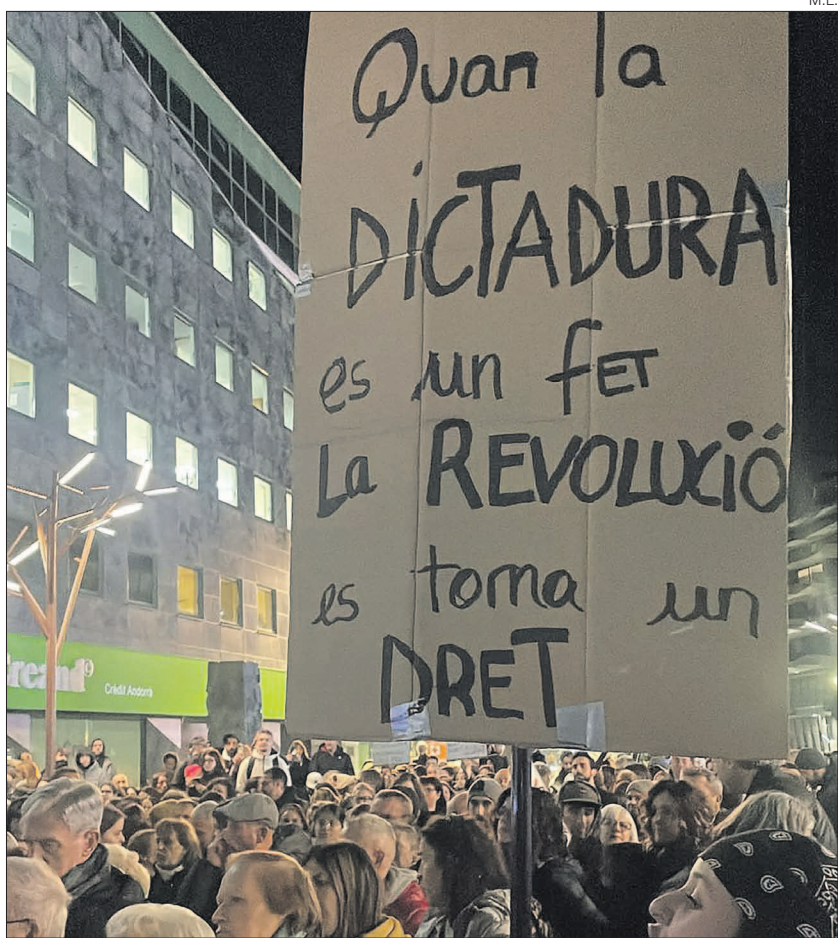 M.E.
Quan la
DICTADURA
es un fET
La REVOLUCIÓ
es torna un
DRET
creand
Crèdit Andorrà